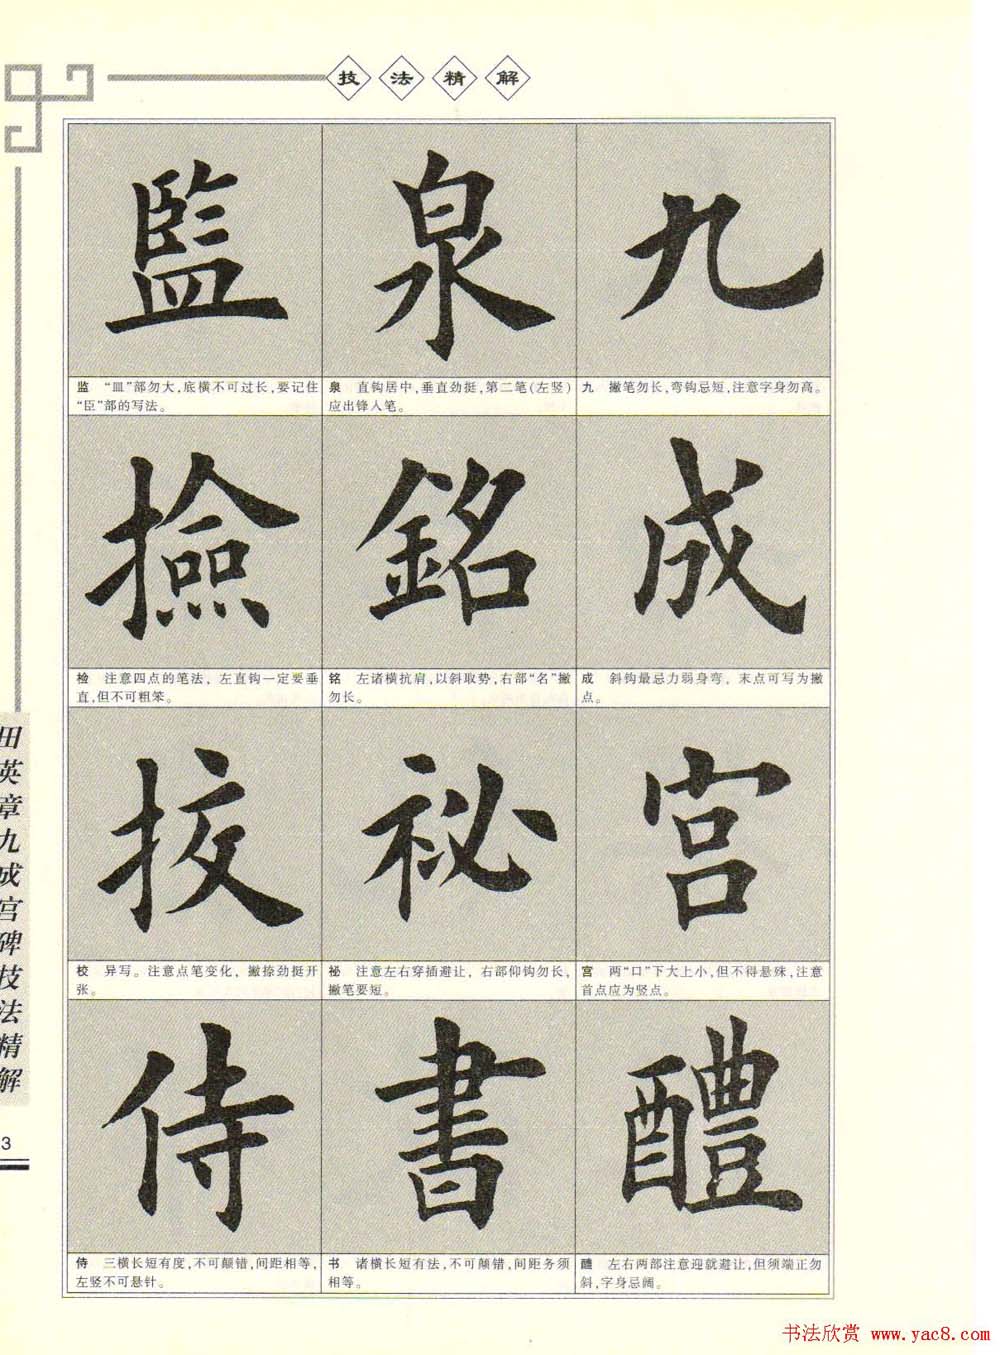 技法精解
九
泉
監
九 撇笔勿长,弯钩忌短,注意字身勿高。
泉 直钩居中,垂直劲挺,第二笔(左竖)
应出锋入笔。
监 “皿”部勿大,底横不可过长,要记住
“臣”部的写法。
成
銘
撿
成 斜钩最忌力弱身弯，末点可写为撇
点。
铭 左诸横抗肩,以斜取势,右部“名”撇
勿长。
检 注意四点的笔法，左直钩一定要垂
直,但不可粗笨。
宫
祕
挍
宫 两“口”下大上小,但不得悬殊,注意
首点应为竖点。
祕 注意左右穿插避让，右部仰钩勿长,
撇笔要短。
校 异写。注意点笔变化，撇捺劲挺开
张。
醴
書
侍
醴 左右两部注意迎就避让,但须端正勿
斜,字身忌阔。
书 诸横长短有法,不可颠错,间距务须
相等。
侍 三横长短有度,不可颠错,间距相等,
左竖不可悬针。
田英章九成宫碑技法精解
3
书法欣赏 www.yac8.com